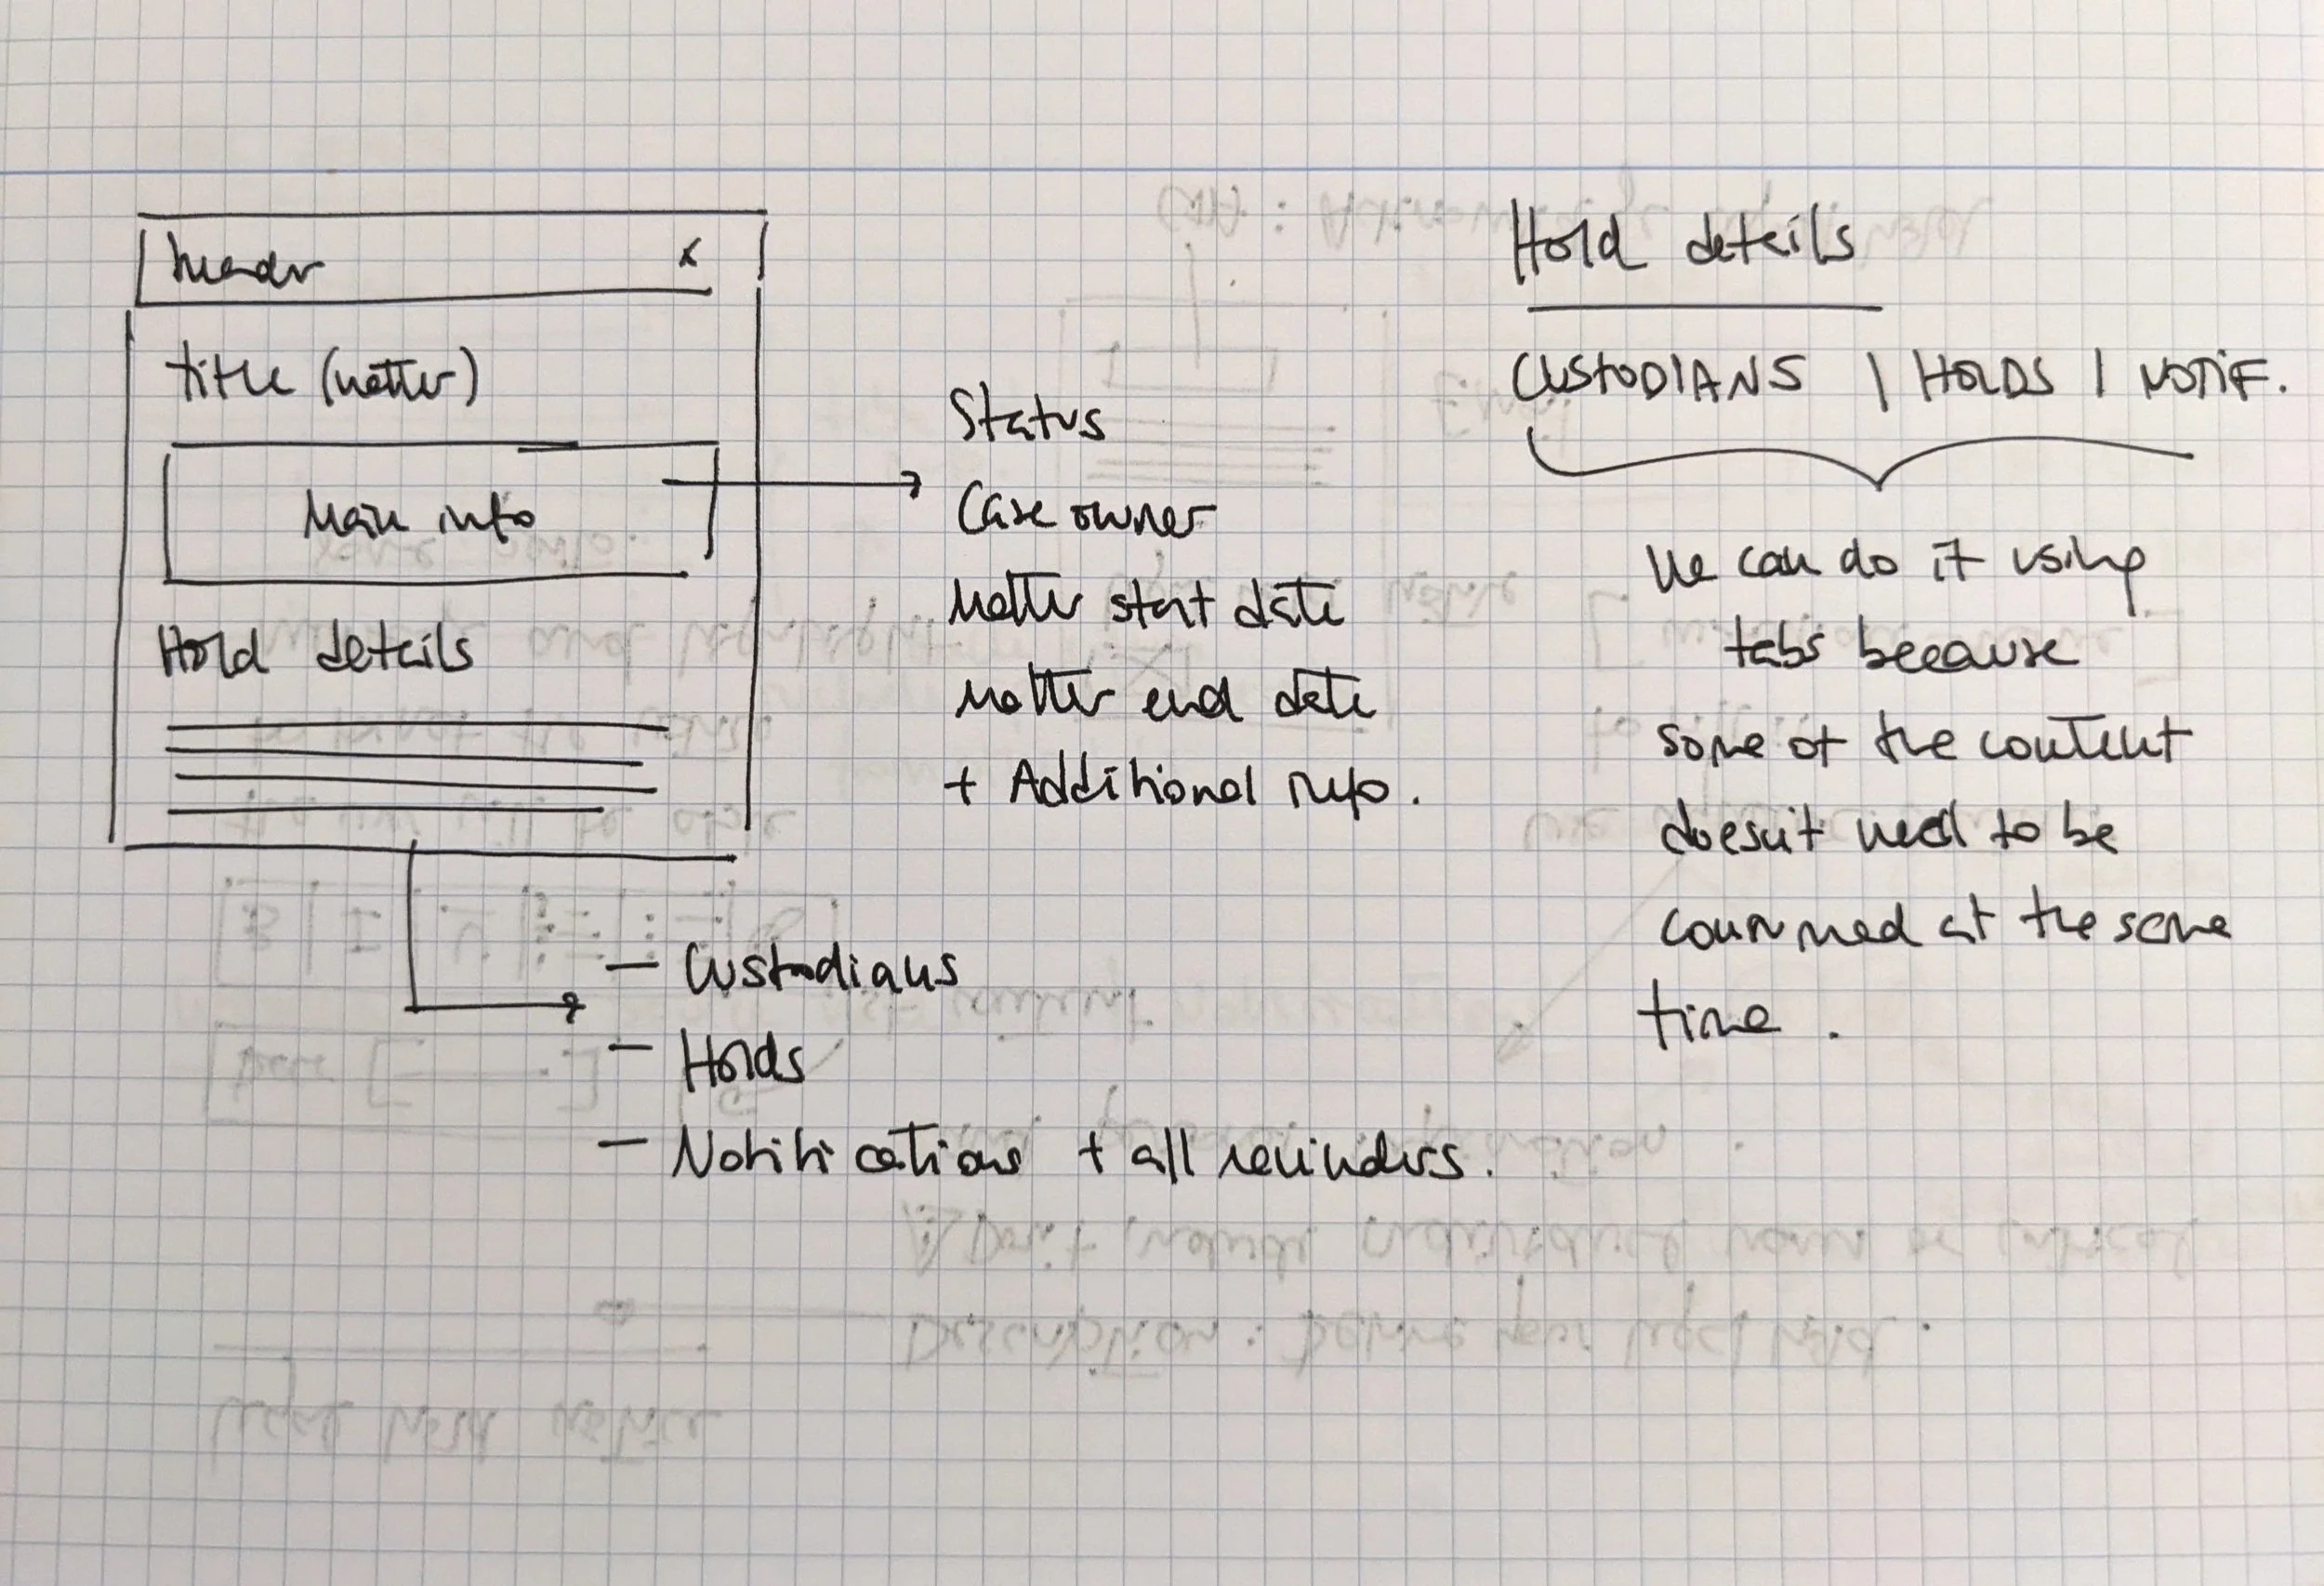 header x
title (matter)
Main info
Hold details
Status
Case owner
Matter start date
Matter end date
+ Additional info.
- Custodians
- Holds
- Notifications + all reminders.
Hold details
CUSTODIANS | HOLDS | NOTIF.
We can do it using
tabs because
some of the content
doesn't need to be
consumed at the same
time.